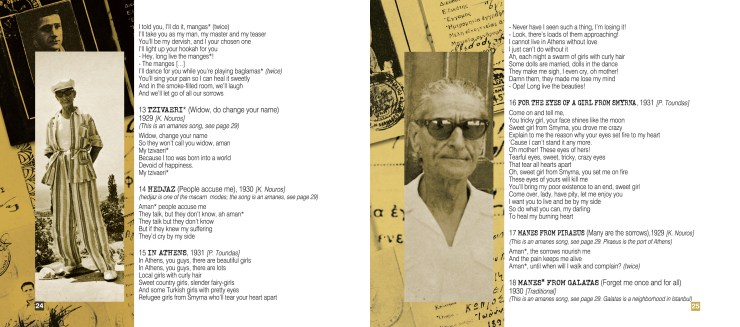 I told you, I'll do it, mangas* (twice)
I'll take you as my man, my master and my teaser
You'll be my dervish, and I your chosen one
I'll light up your hookah for you
- Hey, long live the manges*!
- The manges [...]
I'll dance for you while you're playing baglamas* (twice)
You'll sing your pain so I can hear it sweetly
And in the smoke-filled room, we'll laugh
And we'll let go of all our sorrows
13 TZIVAERI* (Widow, do change your name)
1929 [K. Nouros]
(This is an amanes song, see page 29)
Widow, change your name
So they won't call you widow, aman
My tzivaeri*
Because I too was born into a world
Devoid of happiness.
My tzivaeri*
14 HEDJAZ (People accuse me), 1930 [K. Nouros]
(hedjaz is one of the macam modes; the song is an amanes, see page 29)
Aman* people accuse me
They talk, but they don't know, ah aman*
They talk but they don't know
But if they knew my suffering
They'd cry by my side
15 IN ATHENS, 1931 [P. Toundas]
In Athens, you guys, there are beautiful girls
In Athens, you guys, there are lots
Local girls with curly hair
Sweet country girls, slender fairy-girls
And some Turkish girls with pretty eyes
Refugee girls from Smyrna who'll tear your heart apart
24
- Never have I seen such a thing, I'm losing it!
- Look, there's loads of them approaching!
I cannot live in Athens without love
I just can't do without it
Ah, each night a swarm of girls with curly hair
Some dolls are married, dolls in the dance
They make me sigh, I even cry, oh mother!
Damn them, they made me lose my mind
- Opa! Long live the beauties!
16 FOR THE EYES OF A GIRL FROM SMYRNA, 1931 [P. Toundas]
Come on and tell me,
You tricky girl, your face shines like the moon
Sweet girl from Smyrna, you drove me crazy
Explain to me the reason why your eyes set fire to my heart
'Cause I can't stand it any more.
Oh mother! These eyes of hers!
Tearful eyes, sweet, tricky, crazy eyes
That tear all hearts apart
Oh, sweet girl from Smyrna, you set me on fire
These eyes of yours will kill me
You'll bring my poor existence to an end, sweet girl
Come over, lady, have pity, let me enjoy you
I want you to live and be by my side
So do what you can, my darling
To heal my burning heart
17 MANES FROM PIRAEUS (Many are the sorrows),1929 [K. Nouros]
(This is an amanes song, see page 29. Piraeus is the port of Athens)
Aman*, the sorrows nourish me
And the pain keeps me alive
Aman*, until when will I walk and complain? (twice)
18 MANES* FROM GALATAS (Forget me once and for all)
1930 [Traditional]
(This is an amanes song, see page 29. Galatas is a neighborhood in Istanbul)
25